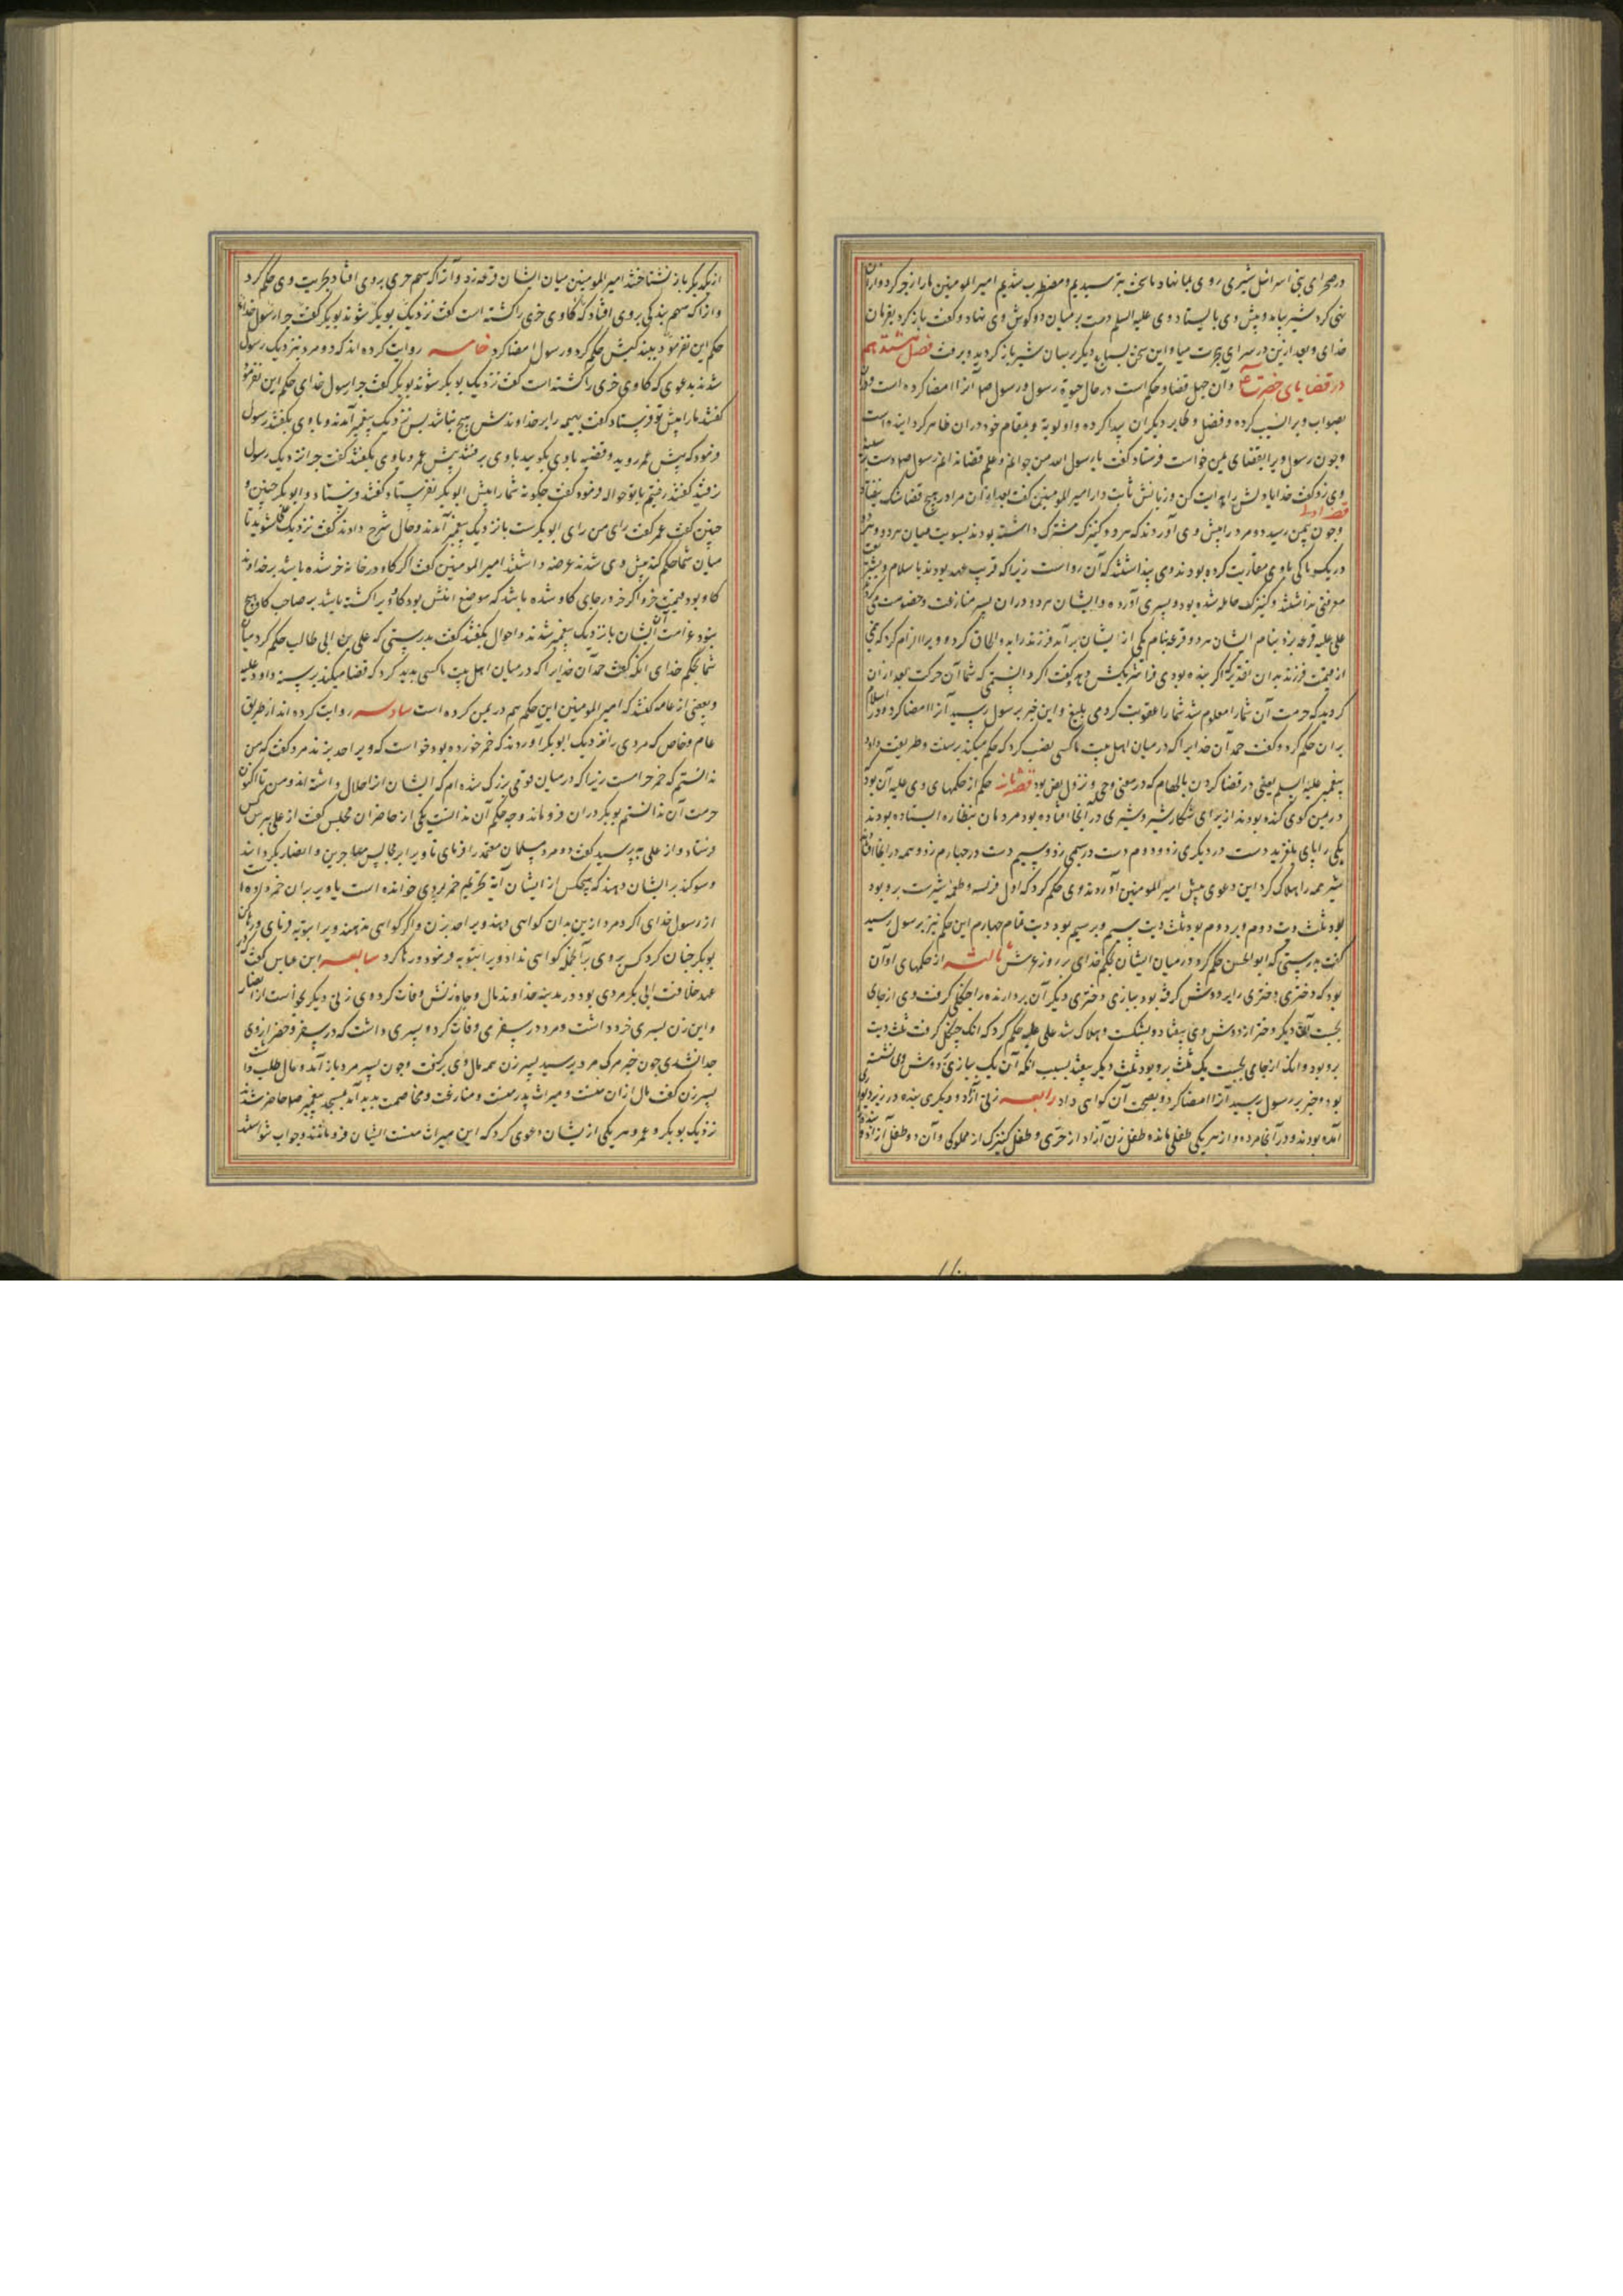 در صحرای بنی اسرائل شیری روی بما نهاد ما سخت بترسیدیم و مضطرب شدیم امیر المومنین ما را زجر کرد و از آن
نهی کرد شیر بیامد و پیش وی بایستاد وی علیه السلم دست بر میان دو گوش وی نهاد و گفت باز گرد بفرمان
خدای و بعد ازین در سرای هجرت میا و این سخن بسباع دیگر برسان شیر باز گردید و برفت فصل هشتدهم
در قضایای حضرت و آن جهل قضا و حکم است در حال حیوة رسول و رسول صلم آنرا امضا کرده است و
بصواب ویرا نسبب کرده و فضل و ظاهر دیگران پیدا کرده و اولویة و بمقام خود در آن ظاهر کردانیده است
و جون رسول ویرا بقضای یمن خواست فرستاد گفت یا رسول الله من جوانم و علم قضا ندانم رسول صلم دست بر سینه
وی زد گفت خدایا دلش را هدایت کن و زبانش ثابت دار امیر المومنین گفت بعد از آن مرا در هیچ قضا شک نیفتاد
قصه اولی
و جون بیمن رسید دو مرد را پیش وی آوردند که هر دو کنیزک مشترک داشته بودند بسویت میان هر دو و هر دو
در یک پاکی با وی مقاربت کرده بودند و می پنداشتند که آن رواست زیرا که قریب عهد بودند باسلام و بشریعت
معرفتی نداشتند و کنیزک حامله شده بود و پسری آورده و ایشان هر دو در آن پسر منازعت و خصومت می کردند
علی علیه قرعه بزد بنام ایشان هر دو قرعه بنام یکی از ایشان برآمد فرزند را بدو الحاق کرد و ویرا الزام کرد که نیمی
از قیمت فرزند بدان تقدیر که اگر بنده بودی فرا شریکش دهد و گفت اگر دانستمی که شما آن حرکت بعد از آن
کردید که حرمت آن شما را معلوم شد شما را عقوبت کردمی بلیغ و این خبر برسول رسید آنرا امضا کرد و در اسلام
بر آن حکم کرد و گفت حمد آن خدایرا که در میان اهل بیت ما کسی نصب کرد که حکم میکند بر سنت و طریقت داود
پیغمبر علیه السلم یعنی در قضا کردن بالهام که در معنی وحی و نزول نص بود قصه ثانیه حکم از حکمهای وی علیه آن بود
در یمن گوی کنده بودند از برای شکار شیر و شیری در آنجا افتاده بود مردمان بنظاره ایستاده بودند
یکی را پای بلغزید دست در دیگری زد و دوم دست در سیمی زد و سیم دست در جهارم زد و همه در آنجا افتادند
شیر همه را هلاک کرد این دعوی پیش امیر المومنین آوردند وی حکم کرد که اول فریسه و طعمه شیرست بر و بود
ثلث دیت دوم و بر دوم بود ثلث دیت سیم و بر سیم بود دیت تمام جهارم این حکم نیز برسول رسید
گفت بدرستی که ابو الحسن حکم کرد در میان ایشان بحکم خدای بر روز عرش ثالثه از حکمهای او آن
بود که دختری دختری را بر دوش گرفته بود ببازی و دختری دیگر آن بردارنده را جنگلی گرفت وی از جای
بجست آن دیگر دختر از دوش وی بیفتاد و بشکست و هلاک شد علی علیه حکم کرد که آنک جنگل گرفت ثلث دیت
بر و بود و آنک از جای بجست یک ثلث بر و بود ثلث دیگر بیفتد بسبب آنکه آن یک ببازی بر دوش وی نشسته
بود و خبر برسول رسید آنرا امضا کرد و بصحت آن گواهی داد رابعه زنی آزاد و دیگری بنده در زیر دیوار
آمده بودند و در آنجا مرده و از هر یکی طفلی مانده طفل زن آزاد از حری و طفل کنیزک از مملوکی و آن دو طفل آزاد و بنده
از یکدیگر باز نشناختند امیر المومنین میان ایشان قرعه زد و آنرا که سهم حری بر وی افتاد بحریت وی حکم کرد
و آنرا که سهم بندکی بر وی افتاد که گاوی خری را کشته است گفت نزدیک بوبکر شوند بوبکر گفت جرا رسول خدای
حکم این نفرمود ببندکیش حکم کرد و رسول امضا کرد خامسه روایت کرده اند که دو مرد بنزدیک رسول
شدند بدعوی که گاوی خری را کشته است گفت نزدیک بوبکر شوند بوبکر گفت جرا رسول خدای حکم این نفرمود
گفتند ما را پیش تو فرستاد گفت بهیمه را بر خداوندش هیچ نباشد پس نزدیک پیغمبر آمدند و با وی بگفتند رسول
فرمود که پیش عمر روید و قضیه با وی بگویید با وی برفتند پیش عمر و با وی بگفتند گفت جرا نزدیک رسول
نرفتید گفتند رفتیم با تو حواله فرمود گفت جگونه شما را پیش ابوبکر نفرستاد گفتند فرستاد و ابوبکر جنین و
جنین گفت عمر گفت رای من رای ابوبکرست باز نزدیک پیغمبر آمدند و حال شرح دادند گفت نزدیک علی شوید تا
میان شما حکم کند پیش وی شدند عرضه داشتند امیر المومنین گفت اگر گاو در خانه خر شده باشد بر خداوند
گاو بود قیمت خر و اگر خر در جای گاو شده باشد که موضع امنش بود گاو ویرا کشته باشد بر صاحب گاو هیچ
نبود غرامت آن ایشان باز نزدیک پیغمبر شدند و احوال بگفتند گفت بدرستی که علی بن ابی طالب حکم کرد میان
شما بحکم خدای آنکه گفت حمد آن خدایرا که در میان اهل بیت ما کسی پدید کرد که قضا میکند بر سنة داود علیه
و بعضی از عامه گفتند که امیر المومنین این حکم هم در یمن کرده است سادسه روایت کرده اند از طریق
عام و خاص که مردی را نزدیک ابوبکر آوردند که خمر خورده بود خواست که ویرا حد بزند مرد گفت که من
ندانستم که خمر حرامست زیرا که در میان قومی بزرک شده ام که ایشان آنرا حلال داشته اند و من تا اکنون
حرمت آن ندانستم بوبکر در آن فرو ماند وجه حکم آن ندانست یکی از حاضران مجلس گفت از علی بپرس کس
فرستاد و از علی بپرسید گفت دو مرد مسلمان معتمد را فرمای تا ویرا بر مجالس مهاجرین و انصار بگردانند
و سوکند بر ایشان دهند که هیچکس از ایشان آیة تحریم خمر بر وی خوانده است یا ویرا بر آن خبر داده است
از رسول خدای اگر دو مرد ازین بدان گواهی دهند ویرا حد بزن و اگر گواهی ندهند ویرا بتوبه فرمای و رها کن
بوبکر جنان کرد کس بر وی بر آن جمله گواهی نداد ویرا بتوبه فرمود و رها کرد سابعه ابن عباس گفت در
عهد خلافت ابی بکر مردی بود در مدینه خداوند مال و جاه زنش وفات کرد وی زنی دیگر بخواست از انصار
و این زن پسری خرد داشت و مرد در سفری وفات کرد و پسری داشت که در سفر و حضر از وی
جدا نشدی جون خبر مرگ مرد برسید پسر زن همه مال وی برگفت و جون پسر مرد باز آمد و مال طلب داشت
پسر زن گفت مال از آن منست و میراث پدر منست و منازعت و مخاصمت پدید آمد بمسجد پیغمبر صلم حاضر شدند
نزدیک بوبکر و عمر و هر یکی از ایشان دعوی کرد که این میراث منست ایشان فرو ماندند و جواب نتوانستند